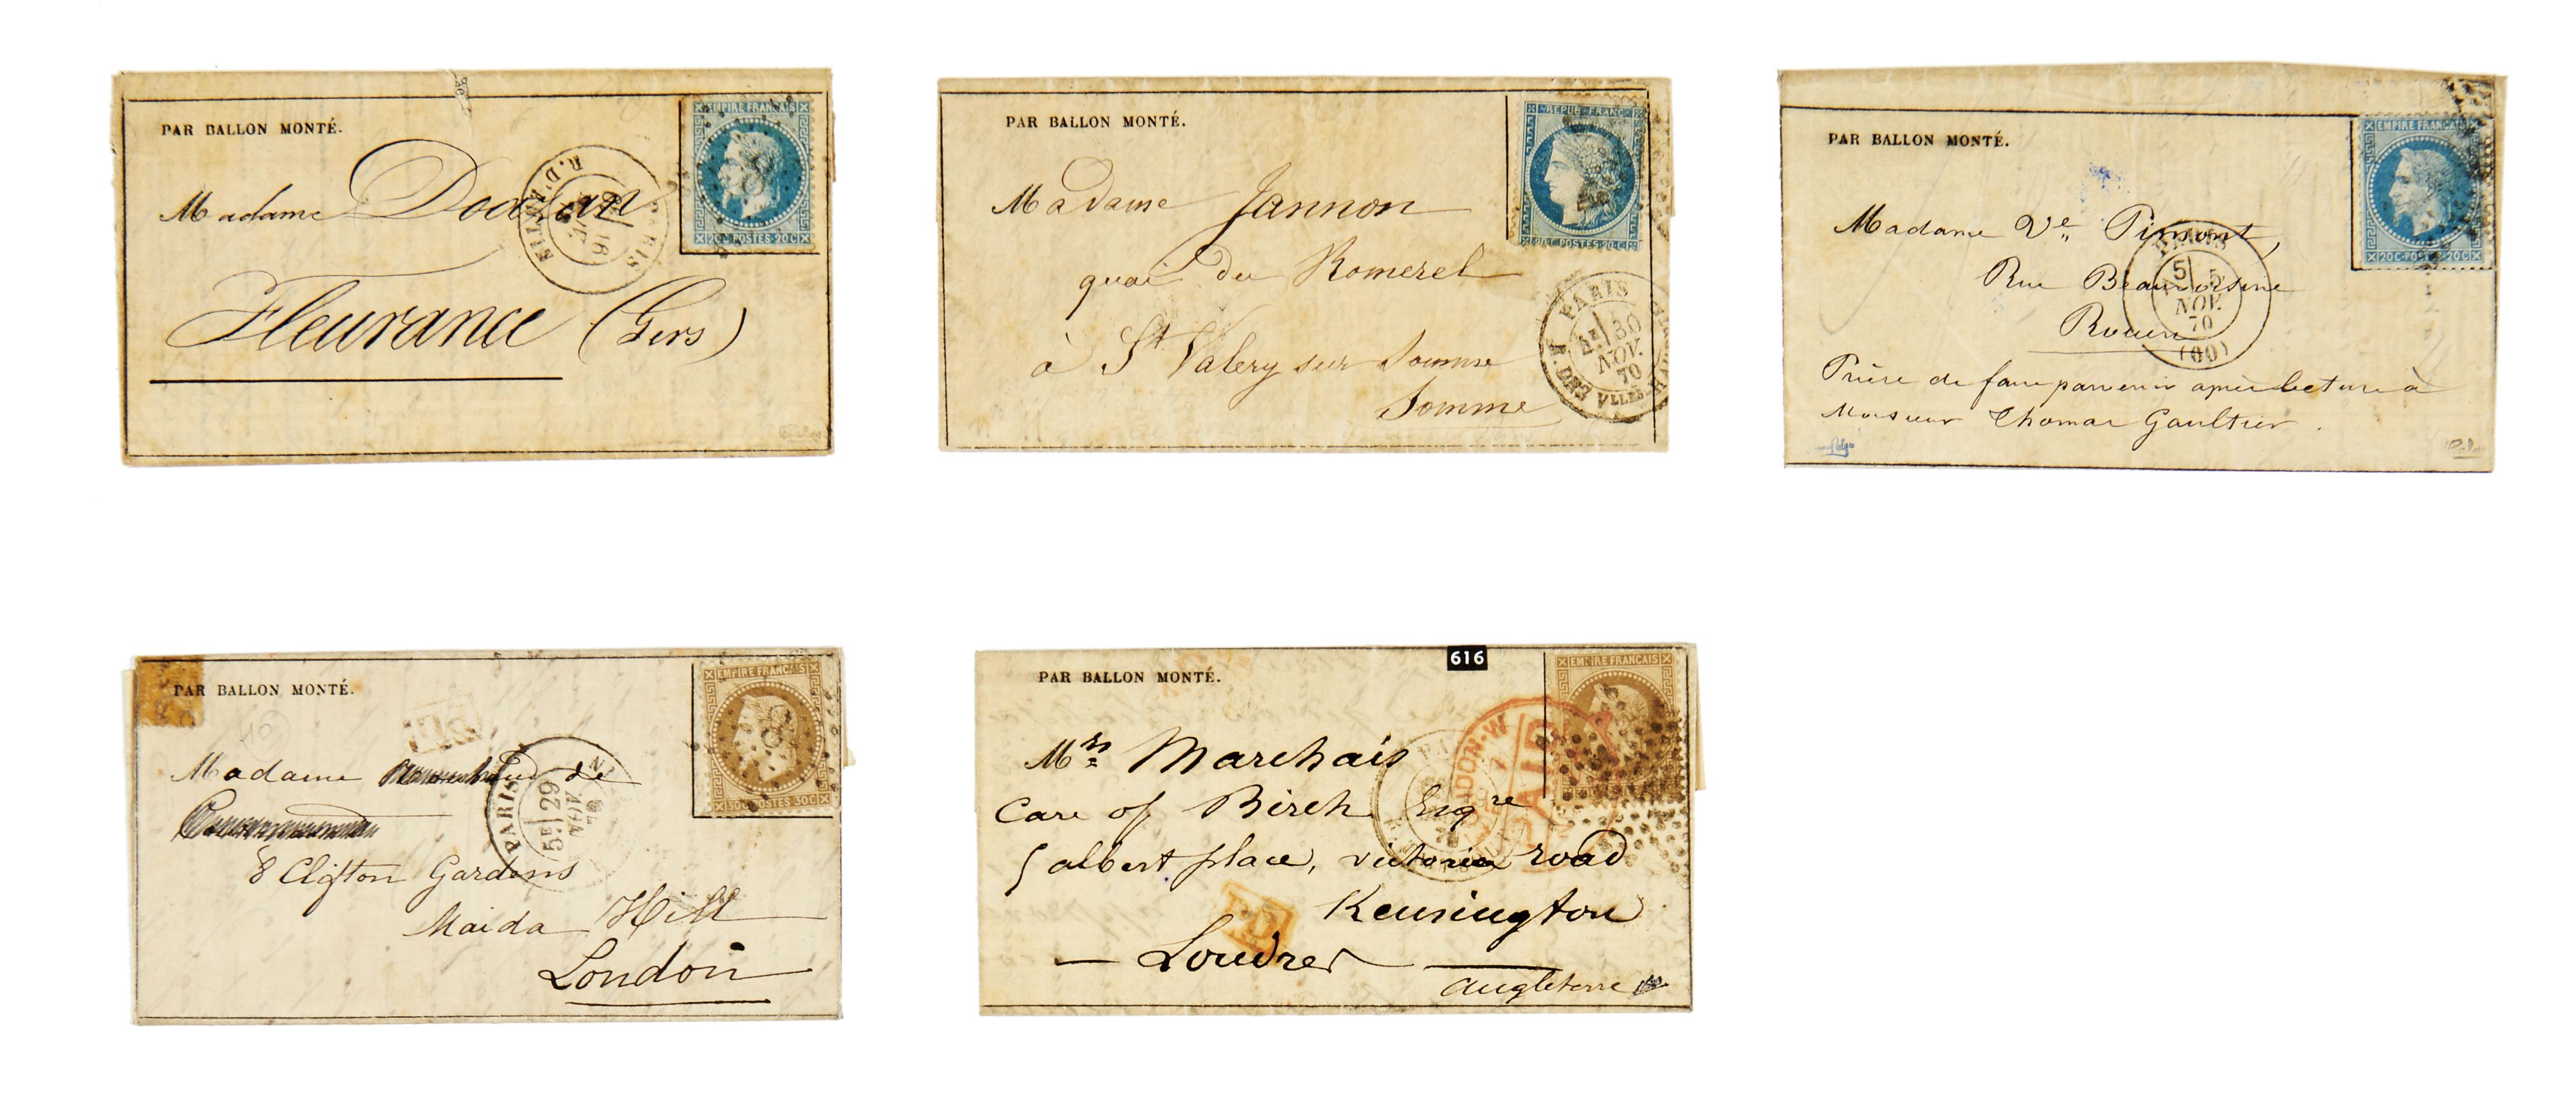 PAR BALLON MONTÉ.
EMPIRE FRANÇAIS
8
20 C POSTES 20 C
PARIS
R. D'
16
Madame
Fleurance (Gers)
PAR BALLON MONTÉ.
REPUB FRANC
20 C POSTES 20 C
Madame Jannon
quai du Romerel
à St Valery sur Somme
Somme
PARIS
30
NOV.
70
PAR BALLON MONTÉ.
EMPIRE FRANÇAIS
20 C POSTES 20 C
Madame Ve Pimont,
Rue Beauvoisine
Rouen
5 5
NOV.
70
(60)
Prière de faire parvenir après lecture à
Monsieur Thomas Gaultier.
PAR BALLON MONTÉ.
EMPIRE FRANÇAIS
8
30 C POSTES 30 C
Madame de
PARIS
5E 29
NOV
8 Clifton Gardens
Maida Hill
London
616
PAR BALLON MONTÉ.
EMPIRE FRANÇAIS
LONDON-W
PAID
Mrs Marchais
care of Birch Esqre
5 albert place, victoria road
Kensington
PD
— Londres
angleterre